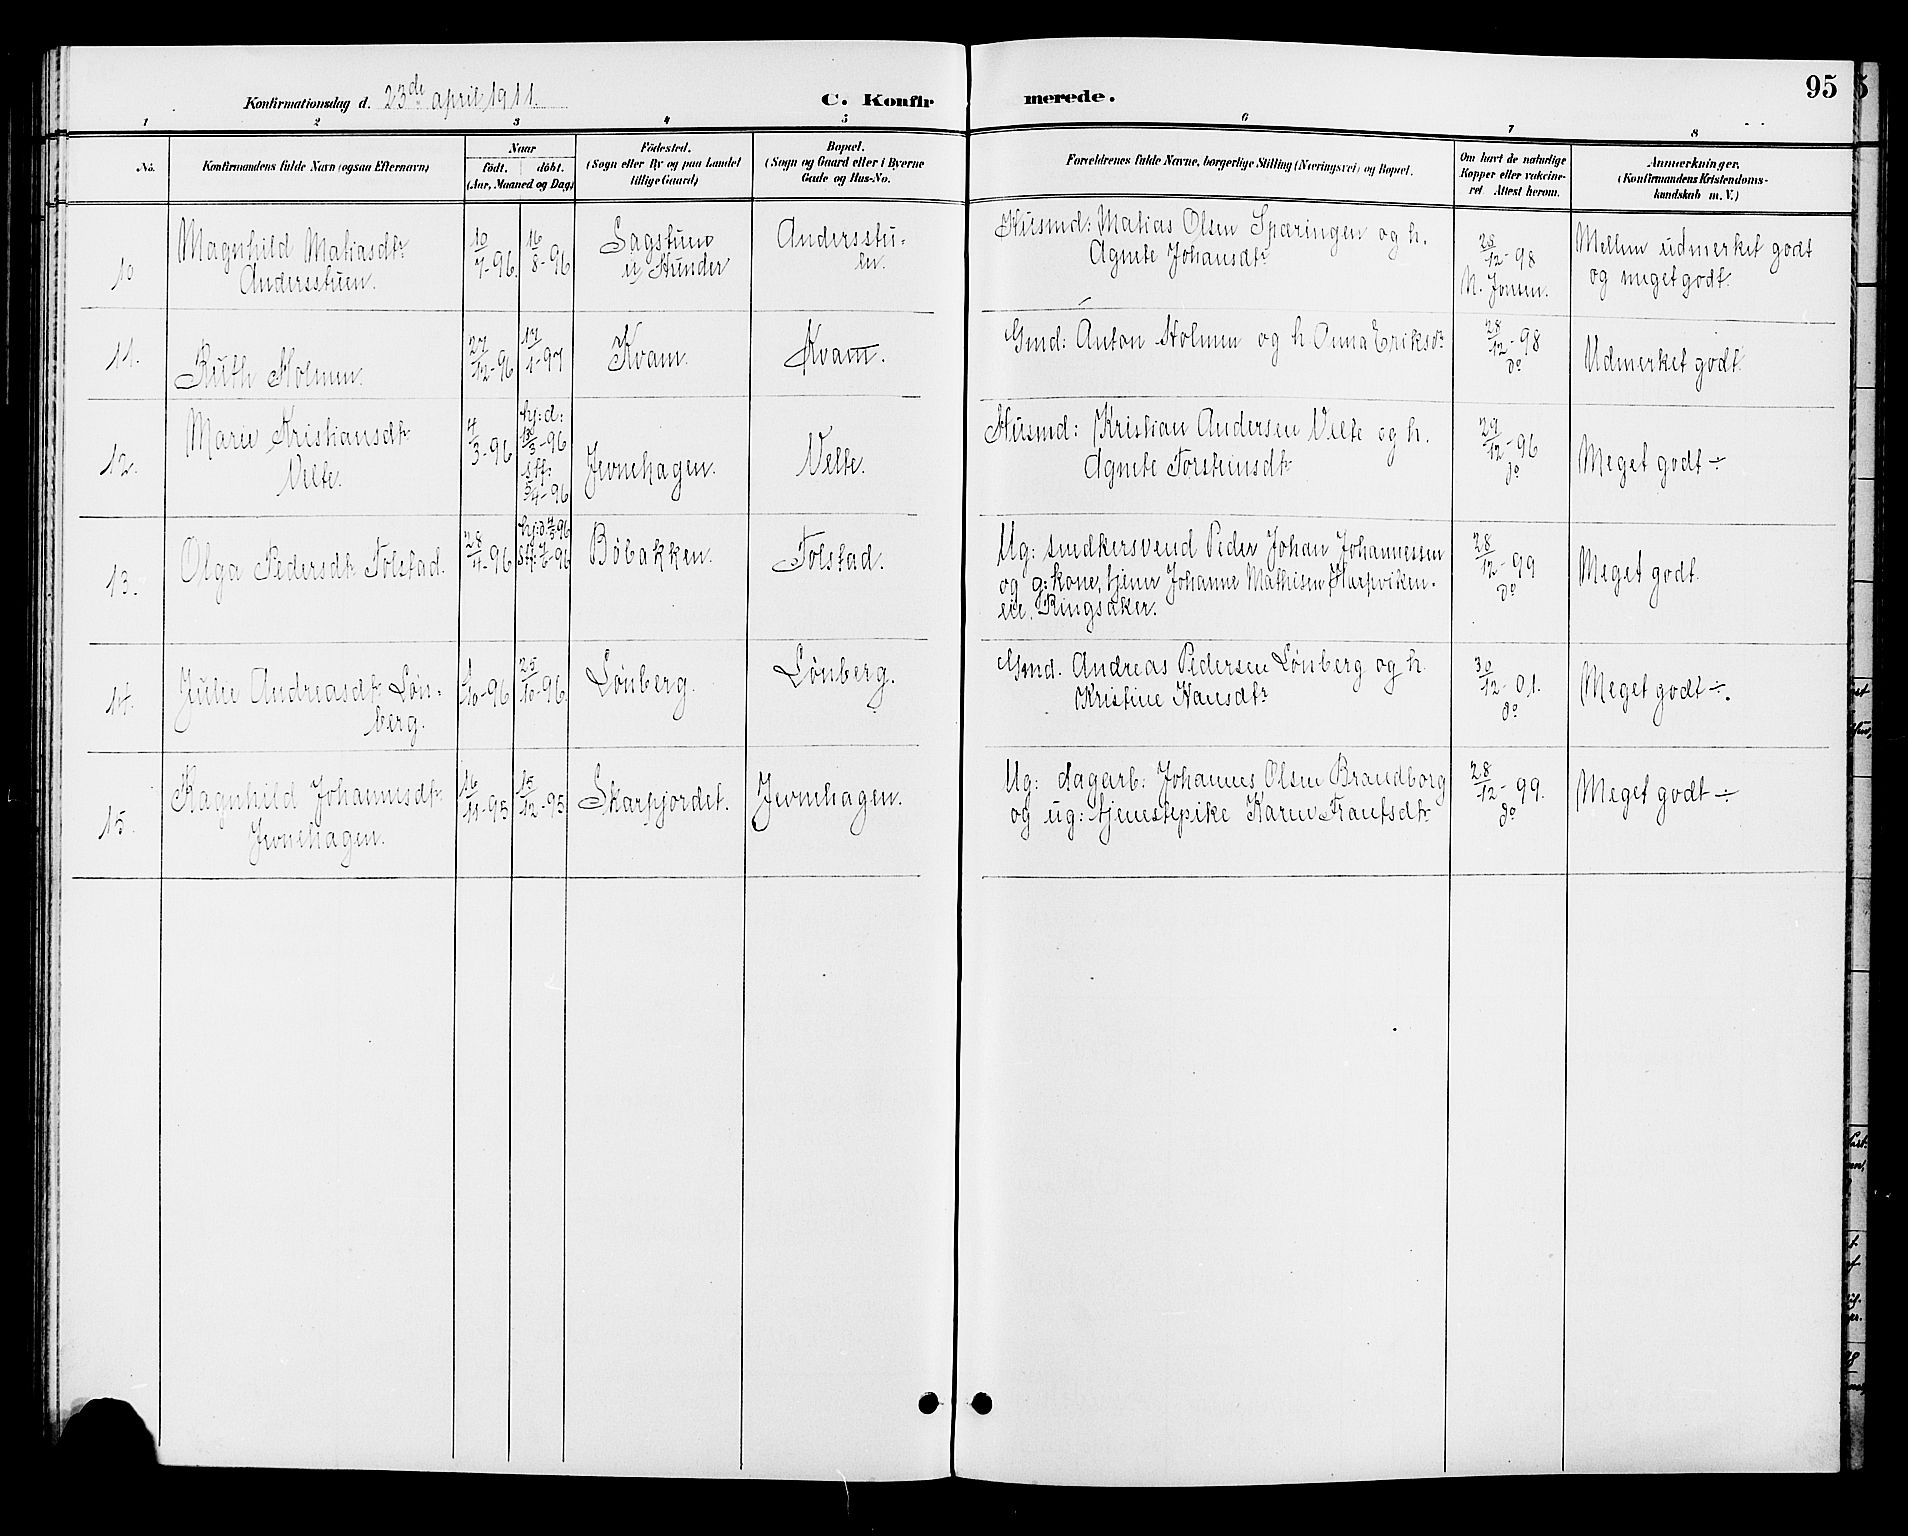 Konfirmationsdag d. 23de april 1911.
C. Konfirmerede.
95
1 2 3 4 5 6 7 8
No.
Konfirmandens fulde Navn (ogsaa Efternavn)
Naar
födt. döbt.
(Aar, Maaned og Dag)
Födested.
(Sogn eller By og paa Landet
tillige Gaard)
Bopæl.
(Sogn og Gaard eller i Byerne
Gade og Hus-No.
Forældrenes fulde Navne, borgerlige Stilling (Næringsvei) og Bopæl.
Om havt de naturlige
Kopper eller vakcine-
ret Attest herom.
Anmærkninger.
(Konfirmandens Kristendoms-
kundskab m. V.)
10
Magnhild Matiasdtr
Andersstuen.
10/7-96. 16/8-96
Sagstuen
u/ Hunder
Andersstu-
en.
Husmd: Matias Olsen Spæringen og h.
Agnete Johansdtr
28/12-98
N. Jonsen.
Mellem udmerket godt
og meget godt.
11.
Ruth Holmen.
27/12-96 17/1-97
Kvam.
Kvam.
Gmd: Anton Holmen og h. Anna Eriksdr
28/12-98
do
Udmerket godt.
12.
Marie Kristiansdtr
Velte.
4/3-96
hj: d:
13/3-96
stf:
5/4-96
Jevnehagen.
Velte.
Husmd: Kristian Andersen Velte og h.
Agnete Torsteinsdtr
29/12-96
do
Meget godt ÷
13.
Olga Pedersdtr Tolstad.
28/4-96
Böbakken.
Tolstad.
Ug: smedkersvend Peder Johan Johannessen
og g: kone, tjener Johanne Mathisen, Harpviken-
eie, Ringsaker.
28/12-99
do
Meget godt.
14.
Julie Andreasdtr Lön-
berg.
/10-96 25/10-96.
Lönberg.
Lönberg.
Gmd. Andreas Pedersen Lönberg og h.
Kristine Hansdtr
30/12-01.
do
Meget godt ÷.
15.
Ragnhild Johannesdtr
Jevnehagen.
16/11-95 15/12-95
Skarpjordet.
Jevnehagen.
Ug: dagarb: Johannes Olsen Brandborg
og ug: tjenestepike Karen Frantsdtr
28/12-99.
do
Meget godt ÷